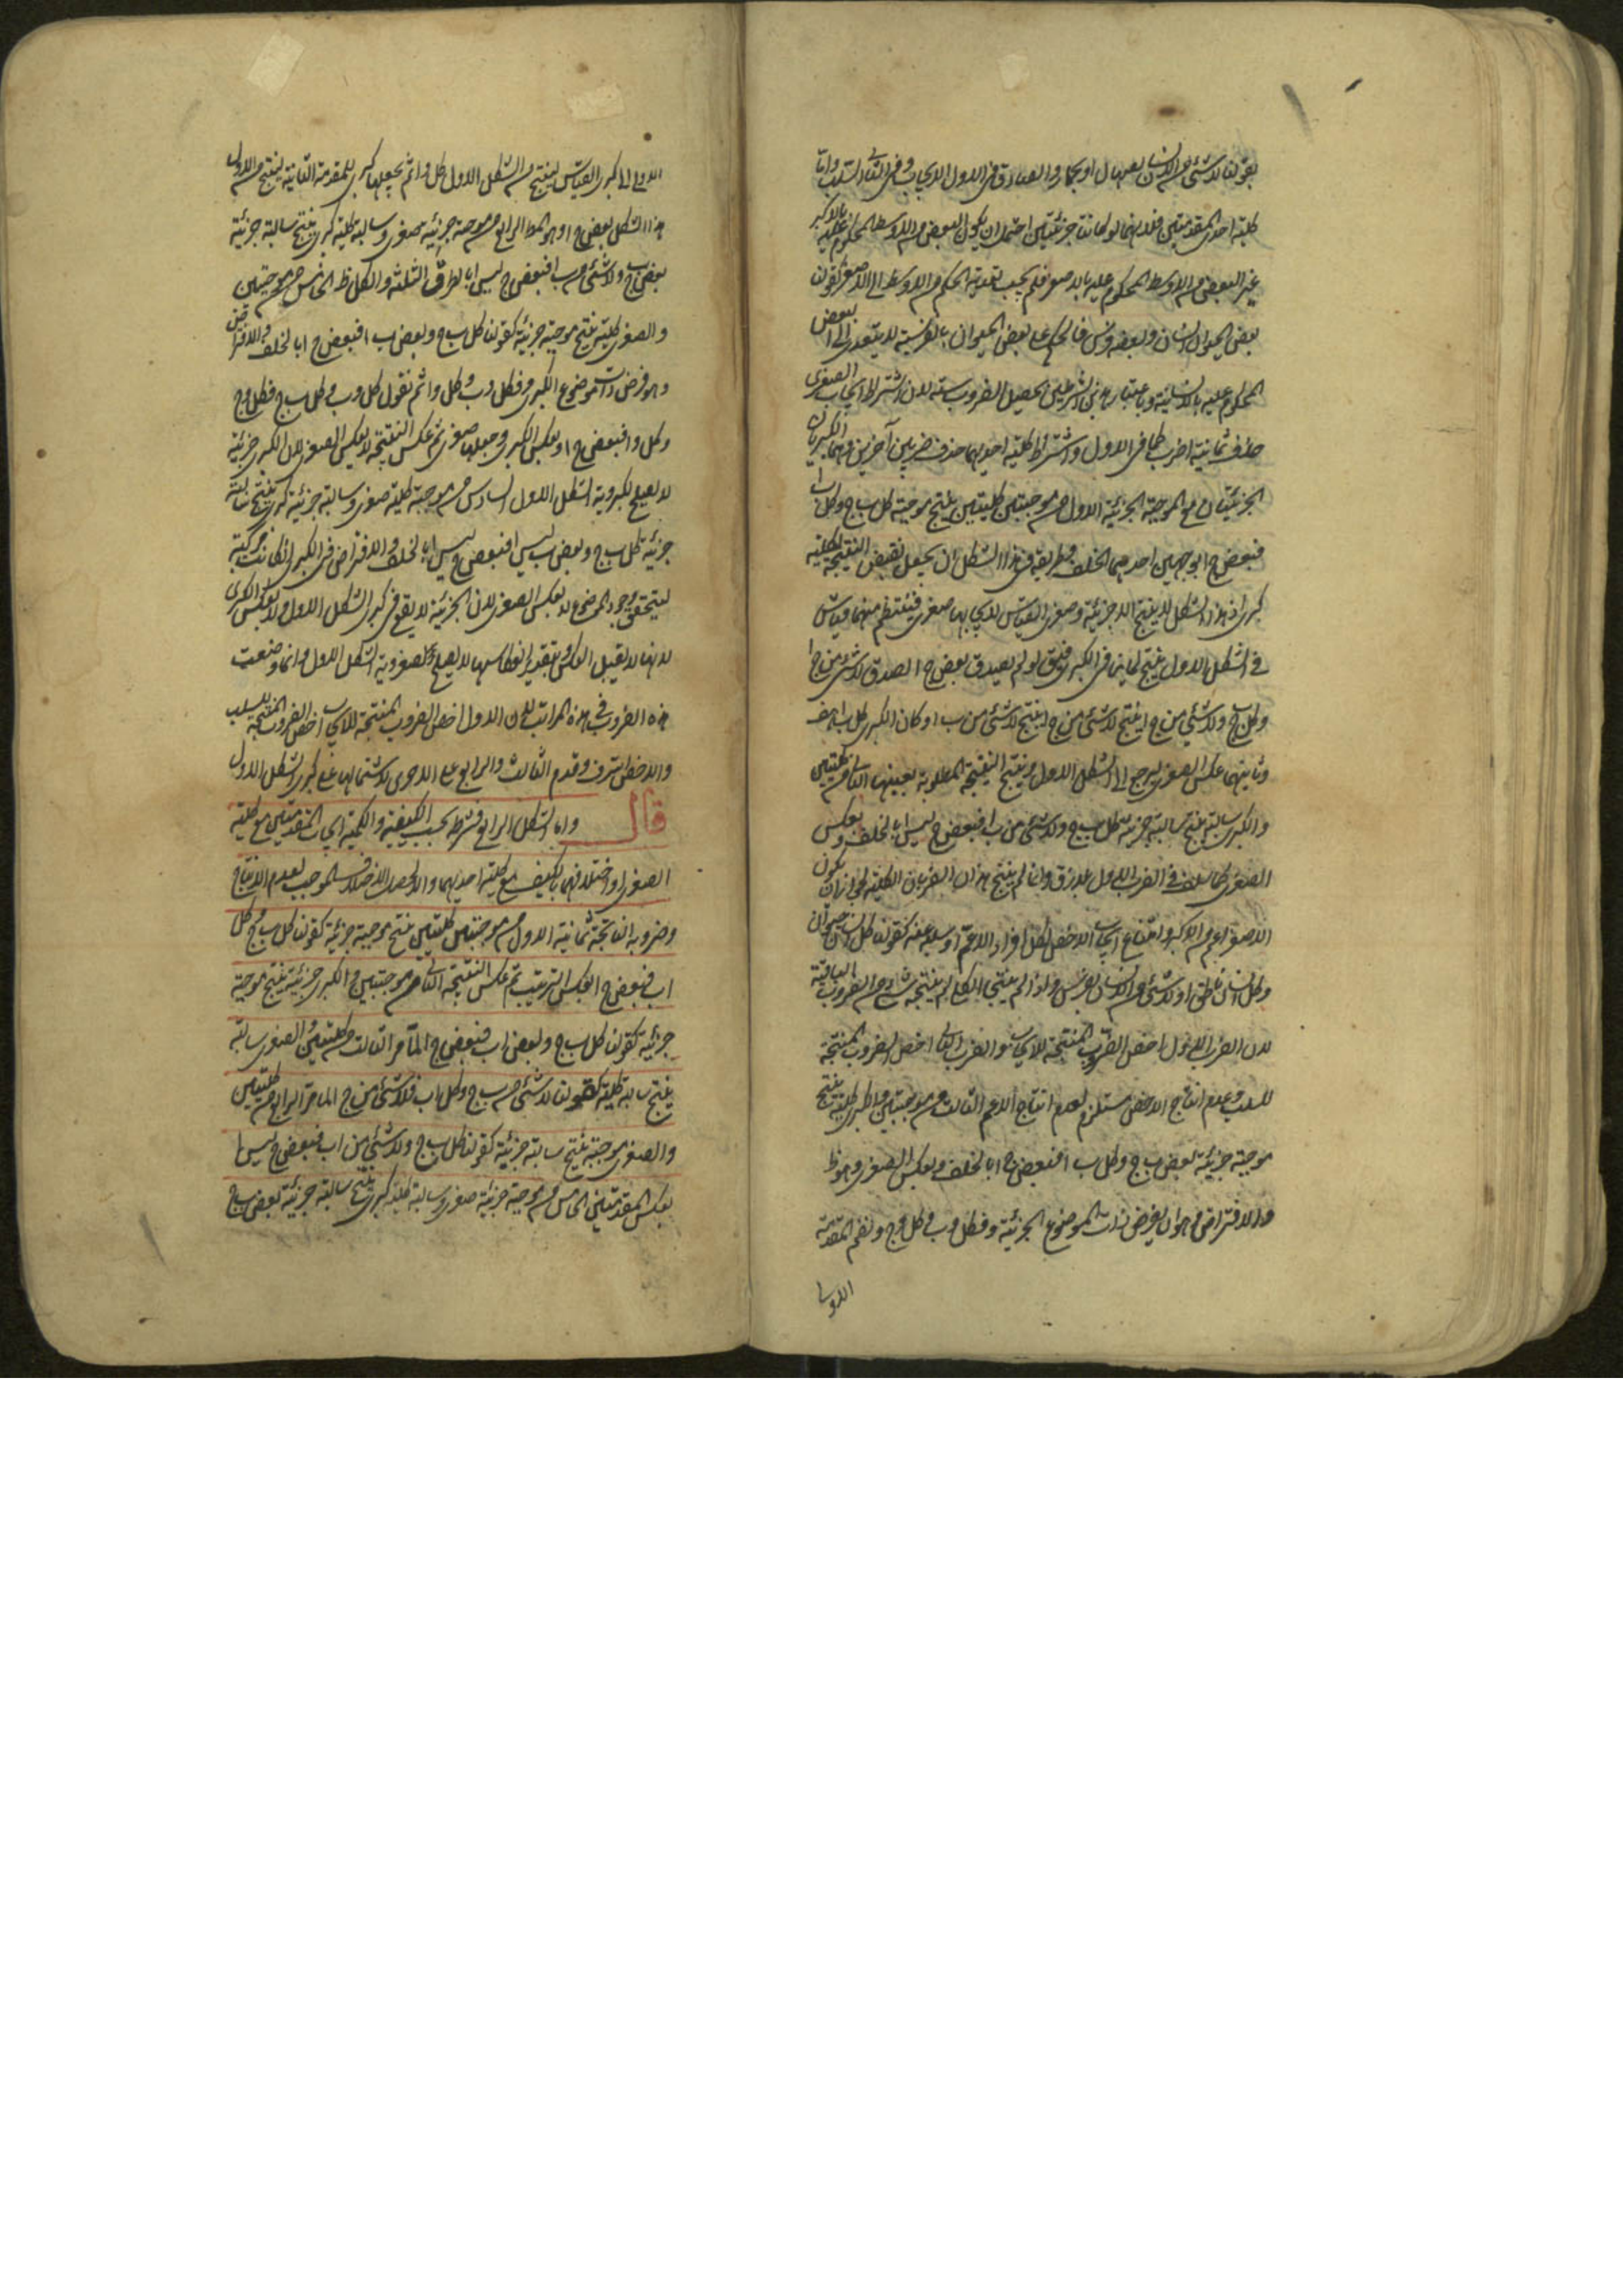 بقولنا لا شئ من الانسان بصهال او بحمار والصادق في الاول الايجاب وفي الثاني السلب واما
كلية احدى المقدمتين فلانهما لو كانتا جزئيتين احتمل ان يكون البعض من الاوسط المحكوم عليه بالاكبر
غير البعض من الاوسط المحكوم عليه بالاصغر فلم يجب تعدية الحكم من الاوسط الى الاصغر كقولنا
بعض الحيوان انسان وبعضه فرس فالحكم على بعض الحيوان بالفرسية لا يتعدى الى البعض
المحكوم عليه بالانسانية وباعتبار هذين الشرطين يحصل الضروب ستة لان اشتراط ايجاب الصغرى
حذف ثمانية اضرب كما في الاول واشتراط كلية احديهما حذف ضربين آخرين وهما الكبريان
الجزئيتان مع الموجبة الجزئية الاول من موجبتين كليتين ينتج موجبة كل ب ج وكل ب ا
فبعض ج ا بوجهين احدهما الخلف وطريقه في هذا الشكل ان يجعل نقيض النتيجة لكلية
كبرى اذ هذا الشكل لا ينتج الا جزئية وصغرى القياس لايجابها صغرى فينتظم منهما قياس
في الشكل الاول ينتج لما ينافي الكبرى فيقال لو لم يصدق بعض ج ا لصدق لا شئ من ج ا
وكل ب ج ولا شئ من ج ا ينتج لا شئ من ب ا وكان الكبرى كل ب ا هف
وثانيهما عكس الصغرى ليرجع الى الشكل الاول وينتج النتيجة المطلوبة بعينها الثاني من كليتين
والكبرى سالبة ينتج سالبة جزئية كل ب ج ولا شئ من ب ا فبعض ج ليس ا بالخلف وبعكس
الصغرى كما سلف في الضرب الاول بلا فرق وانما لم ينتج هذان الضربان الكلية لجواز ان يكون
الاصغر اعم من الاكبر وامتناع ايجاب الاخص لكل افراد الاعم او سلبه عنه كقولنا كل انسان حيوان
وكل انسان ناطق او لا شئ من الانسان بفرس واذا لم ينتجا الكلي لم ينتجه شئ من الضروب الباقية
لان الضرب الاول اخص الضروب المنتجة للايجاب والضرب الثاني اخص الضروب المنتجة
للسلب وعدم انتاج الاخص مستلزم لعدم انتاج الاعم الثالث من موجبتين والكبرى كلية ينتج
موجبة جزئية بعض ب ج وكل ب ا فبعض ج ا بالخلف وبعكس الصغرى وهو ظ
والافتراض وهو ان يفرض ذات الموضوع الجزئية د فكل د ب وكل د ج ونضم المقدمة
الاولى
الاولى الى كبرى القياس لينتج من الشكل الاول كل د ا ثم يجعلها كبرى للمقدمة الثانية لينتج من الاول
هذا الشكل بعض ج ا وهو المط الرابع من موجبة جزئية صغرى وسالبة كلية كبرى ينتج سالبة جزئية
بعض ب ج ولا شئ من ب ا فبعض ج ليس ا بالطرق الثلثة والكل ظ الخامس من موجبتين
والصغرى كلية ينتج موجبة جزئية كقولنا كل ب ج وبعض ب ا فبعض ج ا بالخلف والافتراض
وهو فرض ذات موضوع الكبرى د فكل د ب وكل د ا ثم نقول كل د ب وكل ب ج فكل د ج
وكل د ا فبعض ج ا وبعكس الكبرى وجعلها صغرى ثم عكس النتيجة لا بعكس الصغرى لان الكبرى جزئية
لا يصلح لكبروية الشكل الاول السادس من موجبة كلية صغرى وسالبة جزئية كبرى ينتج سالبة
جزئية كل ب ج وبعض ب ليس ا فبعض ج ليس ا بالخلف والافتراض في الكبرى ان كانت مركبة
ليتحقق وجود الموضوع لا بعكس الصغرى لان الجزئية لا يقع في كبرى الشكل الاول ولا بعكس الكبرى
لانها لا يقبل العكس وبتقدير انعكاسها لا يصلح لصغروية الشكل الاول وانما وضعت
هذه الضروب في هذه المراتب لان الاول اخص الضروب المنتجة للايجاب والثاني اخص الضروب المنتجة للسلب
والاخص اشرف وقدم الثالث والرابع على الاخرى لاشتمالهما على كبرى الشكل الاول
قال واما الشكل الرابع فشرطه بحسب الكيفية والكمية ايجاب المقدمتين مع كلية
الصغرى او اختلافهما بالكيف مع كلية احديهما والا لحصل الاختلاف الموجب لعدم الانتاج
وضروبه الناتجة ثمانية الاول من موجبتين كليتين ينتج موجبة جزئية كقولنا كل ب ج وكل
ا ب فبعض ج ا بعكس الترتيب ثم عكس النتيجة الثاني من موجبتين والكبرى جزئية ينتج موجبة
جزئية كقولنا كل ب ج وبعض ا ب فبعض ج ا لما مر الثالث من كليتين والصغرى سالبة
ينتج سالبة كلية كقولنا لا شئ من ب ج وكل ا ب فلا شئ من ج ا لما مر الرابع من كليتين
والصغرى موجبة ينتج سالبة جزئية كقولنا كل ب ج ولا شئ من ا ب فبعض ج ليس ا
بعكس المقدمتين الخامس من موجبة جزئية صغرى وسالبة كلية كبرى ينتج سالبة جزئية بعض ب ج